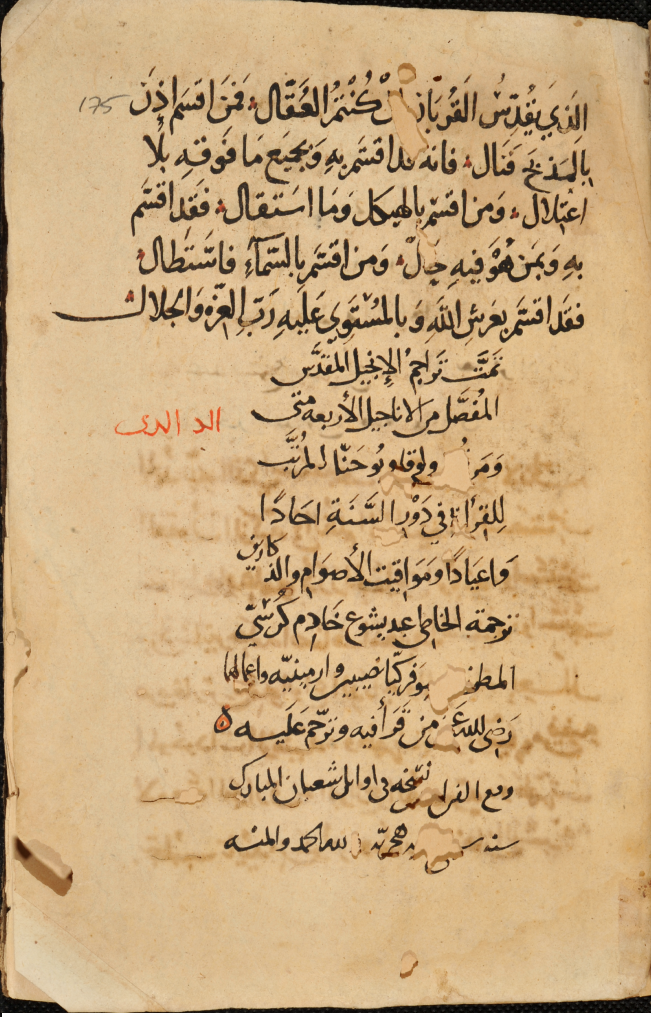 175
الَّذِي يُقَدِّسُ القُربَان كُنْتُمُ العُقَّال؛ فَمَن اقسَم إذَن
بِالمَذبَح فَنَال؛ فانه قد اقسَم بِهِ وَبجميَع مَا فوَقهِ بِلا
اعتِلال؛ وَمن اقسَمَ بِالهيكل وَمَا استَقال؛ فَقَد اقسَم
بِهِ وَبمَن هُوَ فيهِ حَالّ؛ وَمن اقسَم بِالسَّمآءِ فاستَطال؛
فقد اقسَم بعَرشِ اللهِ وَبالمُستَوِي عَلَيهِ رَبّ العِزّه وَالجلال
تمَّت تراجمُ الإنجيل المقدَّس
المُفصَّل من الاناجيل الأربعه متى
ولوقا ويُوحَنّا المُرتَّب
للقرأة في دَوْرِ السَّنَةِ احَادًا
وَاعيَادًا وَمَوَاقيت الأصوَام والذ
كارين
ترجمة الخاطى عبد يشوع خَادِم كُرسيّ
نصيبين وارمينيّه واعمالها
رَضى الله عَن من قَرأ فيه وترَّحم عَلَيه
نسخه فى اوائل شعبان المبارك
سنه هجريّه لله الحمد والمنه